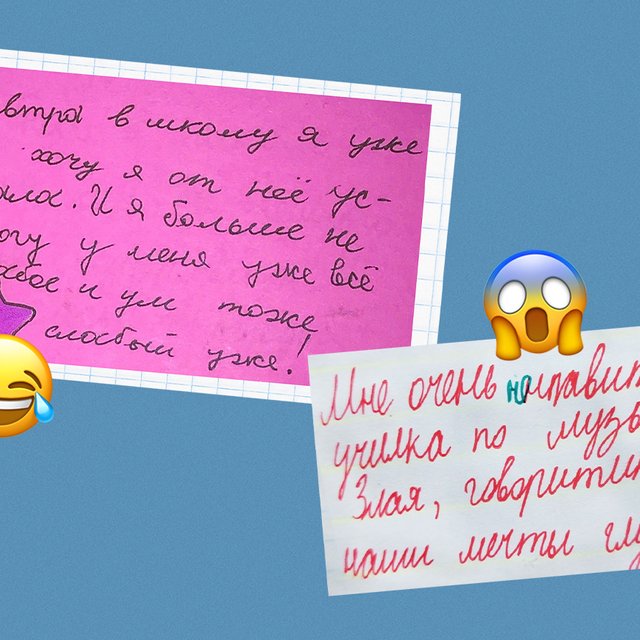 втра в школу я уже
хочу я от неё ус-
ала. И я больше не
огу у меня уже всё
и ум тоже
слабый уже!
Мне очень не нравит
училка по музы
Злая, говорит
наши мечты глу